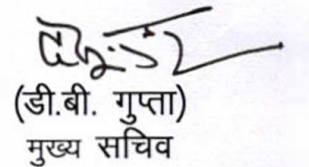 (डी.बी. गुप्ता)
मुख्य सचिव